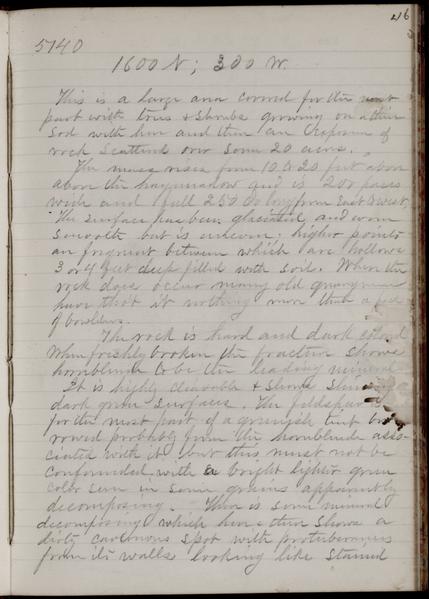 216
5740
1600 N; 300 W.
This is a large area covered for the most
part with trees & shrubs growing on a thin
sod with here and there an exposure of
rock scattered over some 20 acres.
The mass rises from 10 to 20 feet above
above the hay meadow and is 200 paces
wide and full 250 do long from East & West.
The surface has been glaciated and worn
smooth but is uneven, higher points
are frequent between which are hollows
3 or 4 feet deep filled with soil. Where the
rock does occur many old quarrymen
have that it nothing more than a
of bowlders.
The rock is hard and dark colored
When freshly broken the fracture shows
hornblende to be the leading mineral
It is highly cleavable & shows
dark green surfaces. The feldspar
for the most part of a greenish tint
rowed probably from the hornblende asso-
ciated with it but this must not be
confounded with a bright lighter green
color seen in some grains apparently
decomposing. There is some mineral
decomposing which here & there shows a
dirty cavernous spot with protuberances
from its walls looking like stained